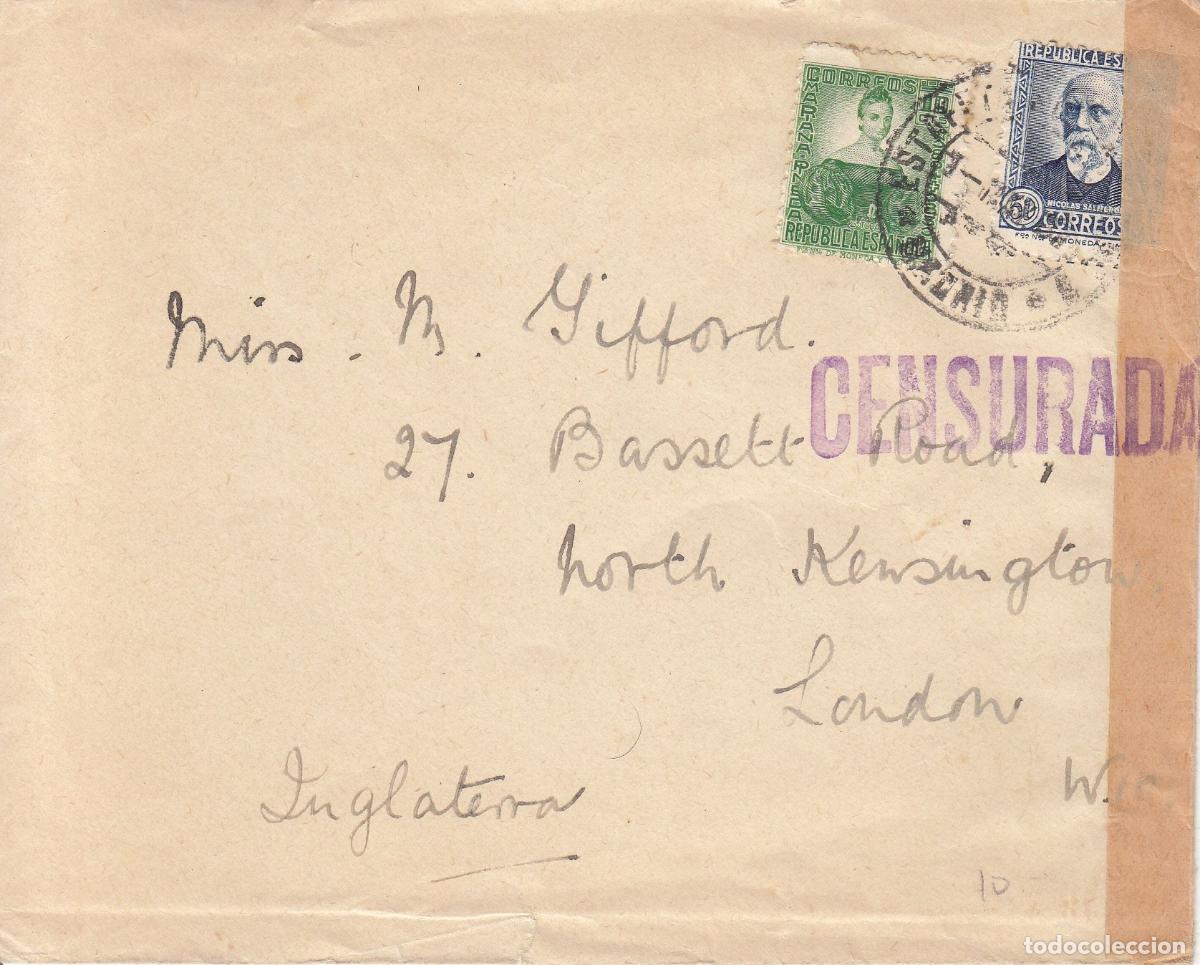 CORREOS
MARIANA PINEDA
REPUBLICA ESPAÑOLA
REPUBLICA ES
NICOLAS SALMERO
50 CORREOS
Miss. M. Gifford.
CENSURADA
27. Bassett Road,
North Kensington.
London
W.10.
Inglaterra
10
todocoleccion